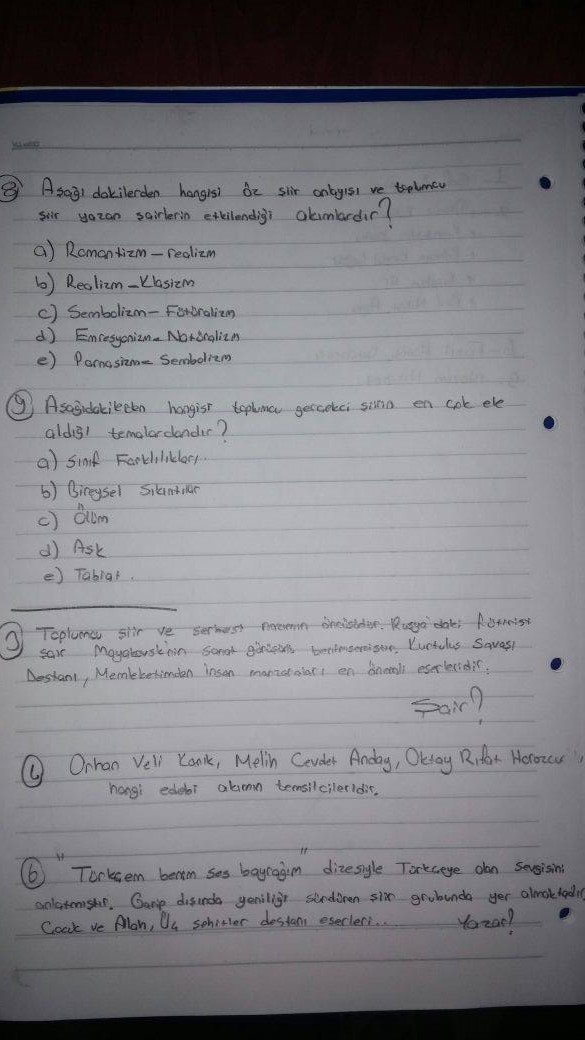 8) Aşağıdakilerden hangisi öz şiir anlayışı ve toplumcu
şiir yazan şairlerin etkilendiği akımlardır?
a) Romantizm - realizm
b) Realizm - Klasizm
c) Sembolizm - Fütüralizm
d) Emresyonizm - Natüralizm
e) Parnasizm - Sembolizm
9) Aşağıdakilerden hangisi toplumcu gerçekci şiirin en çok ele
aldığı temalardandır?
a) Sınıf Farklılıkları.
b) Bireysel Sıkıntılar
c) Ölüm
d) Aşk
e) Tabiat.
Toplumcu şiir ve serbest nazımın öncüsüdür. Rusya'daki fütürist
şair Mayakovski'nin sanat görüşünü benimsemiştir. Kurtuluş Savaşı
Destanı, Memleketimden insan manzaraları en önemli eserleridir.
Şair?
Orhan Veli Kanık, Melih Cevdet Anday, Oktay Rıfat Horozcu
hangi edebi akımın temsilcileridir.
6) "Türkçem benim ses bayrağım" dizesiyle Türkçeye olan sevgisini
anlatmıştır. Garip dışında yeniliği sürdüren şiir grubunda yer almaktadır
Çocuk ve Allah, Üç şehitler destanı eserleri... Yazar?